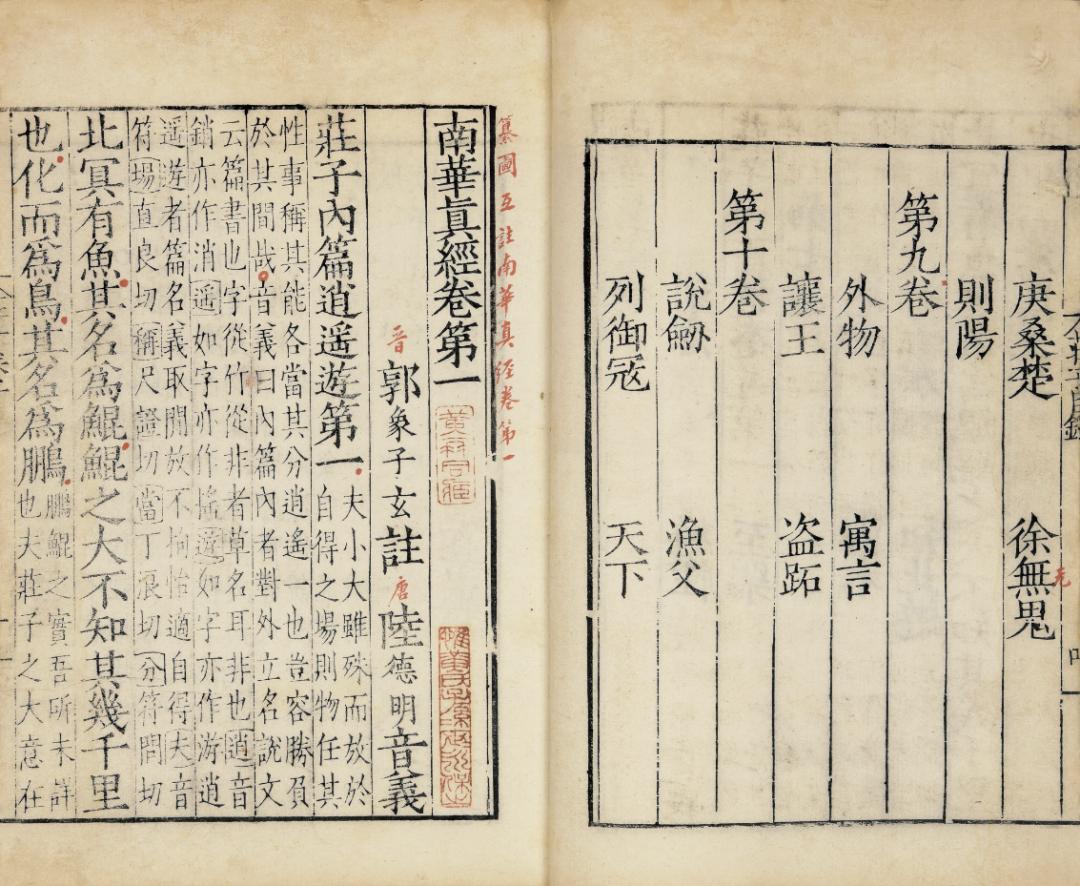 庚桑楚 徐無鬼
則陽
第九卷
外物 寓言
讓王 盗跖
第十卷
說劒 漁父
列御寇 天下
纂圖互註南華真經卷第一
南華眞經卷第一
晋郭象子玄註 唐陸德明音義
莊子內篇逍遥遊第一
夫小大雖殊而放於
自得之場則物任其
性事稱其能各當其分逍遙一也豈容勝負
於其間哉音義曰內篇內者對外立名說文
云篇書也字從竹從非者草名耳非也逍音
銷亦作消遥如字亦作揺遊如字亦作游逍
遥遊者篇名義取閒放不拘怡適自得夫音
符場直良切稱尺證切當丁浪切分符問切
北冥有魚其名爲鯤鯤之大不知其幾千里
也化而爲鳥其名爲鵬
鵬鯤之實吾所未詳
也夫莊子之大意在